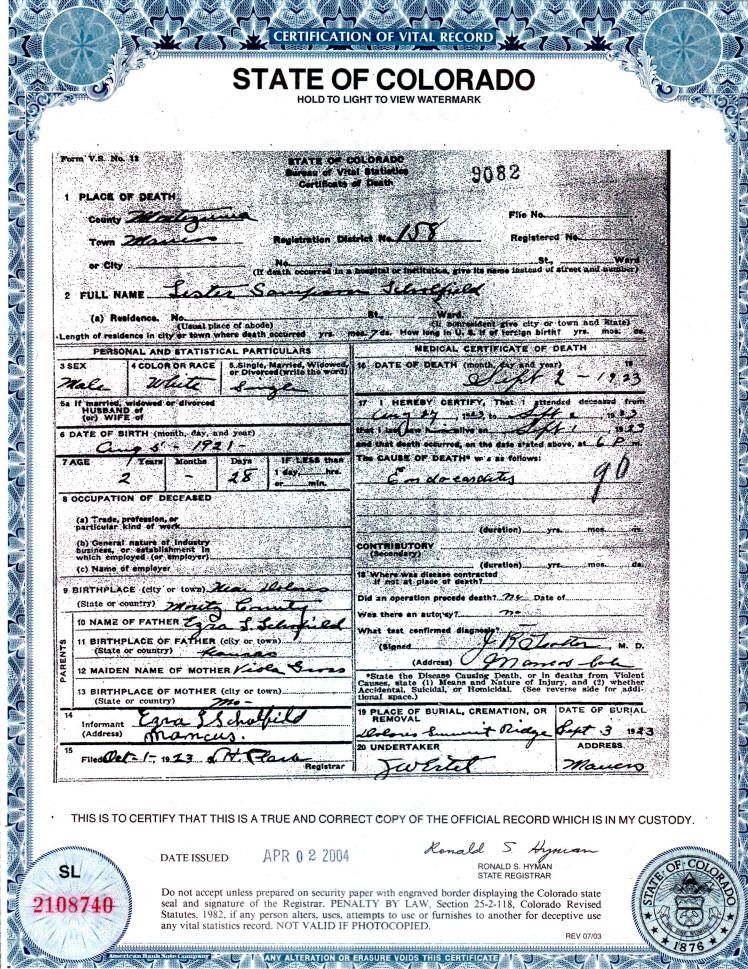 CERTIFICATION OF VITAL RECORD
STATE OF COLORADO
HOLD TO LIGHT TO VIEW WATERMARK
Form V.S. No. 12
STATE OF COLORADO
Bureau of Vital Statistics
Certificate of Death
9082
1 PLACE OF DEATH
County Montezuma File No.
Town Mancos Registration District No. 158 Registered No.
or City No. St., Ward
(If death occurred in a hospital or institution, give its name instead of street and number)
2 FULL NAME Lester Sampson Scholfield
(a) Residence. No. St., Ward
(Usual place of abode) (If nonresident give city or town and State)
Length of residence in city or town where death occurred yrs. mos. 7 ds. How long in U. S. if of foreign birth? yrs. mos. ds.
PERSONAL AND STATISTICAL PARTICULARS
3 SEX 4 COLOR OR RACE 5. Single, Married, Widowed, or Divorced (write the word)
Male White Single
5a If married, widowed or divorced
HUSBAND of
(or) WIFE of
6 DATE OF BIRTH (month, day, and year)
Aug 5 - 1921 -
7 AGE Years Months Days IF LESS than
1 day, hrs.
or min.
2 - 28
8 OCCUPATION OF DECEASED
(a) Trade, profession, or
particular kind of work
(b) General nature of industry
business, or establishment in
which employed (or employer)
(c) Name of employer
9 BIRTHPLACE (city or town) Near Dolores
(State or country) Montz County
PARENTS
10 NAME OF FATHER Ezra S. Scholfield
11 BIRTHPLACE OF FATHER (city or town)
(State or country) Kansas
12 MAIDEN NAME OF MOTHER Viola Gross
13 BIRTHPLACE OF MOTHER (city or town)
(State or country) Mo -
14
Informant Ezra S Scholfield
(Address) Mancus.
15
Filed Oct - 1 -, 1923 Registrar
MEDICAL CERTIFICATE OF DEATH
16 DATE OF DEATH (month, day and year) 19
Sept 2 - 1923
17 I HEREBY CERTIFY, That I attended deceased from
Aug 27, 1923 to Sept 2 1923
that I last saw him alive on Sept 1 1923
and that death occurred, on the date stated above, at 6 P m
The CAUSE OF DEATH* was as follows:
Endocarditis 90
(duration) yrs. mos. ds.
CONTRIBUTORY
(Secondary)
(duration) yrs. mos. ds.
18 Where was disease contracted
if not at place of death?
Did an operation precede death? No Date of
Was there an autopsy? no
What test confirmed diagnosis?
(Signed) M. D.
(Address) Mancos Colo
*State the Disease Causing Death, or in deaths from Violent
Causes, state (1) Means and Nature of Injury, and (2) whether
Accidental, Suicidal, or Homicidal. (See reverse side for addi-
tional space.)
19 PLACE OF BURIAL, CREMATION, OR REMOVAL DATE OF BURIAL
Dolores Summit Ridge Sept 3 1923
20 UNDERTAKER ADDRESS
J W Ertel Mancos
THIS IS TO CERTIFY THAT THIS IS A TRUE AND CORRECT COPY OF THE OFFICIAL RECORD WHICH IS IN MY CUSTODY.
DATE ISSUED APR 02 2004
Ronald S Hyman
RONALD S. HYMAN
STATE REGISTRAR
SL
2108740
Do not accept unless prepared on security paper with engraved border displaying the Colorado state
seal and signature of the Registrar. PENALTY BY LAW, Section 25-2-118, Colorado Revised
Statutes, 1982, if any person alters, uses, attempts to use or furnishes to another for deceptive use
any vital statistics record. NOT VALID IF PHOTOCOPIED.
REV 07/03
STATE OF COLORADO
1876
American Bank Note Company
ANY ALTERATION OR ERASURE VOIDS THIS CERTIFICATE